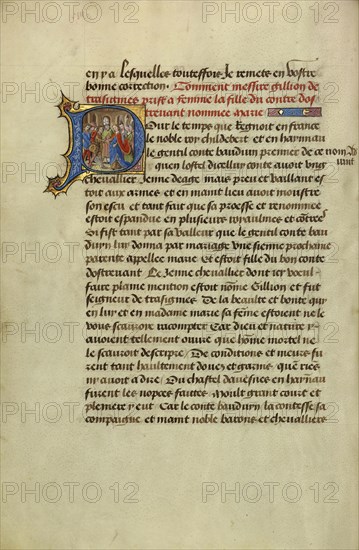 en y a lesquelles touteffois Je remetz en vostre
bonne correction. Comment messire gillion de
trasignies prist a femme la fille du conte dos
trevant nommee marie
Pour le temps que regnoit en france
le noble roy childebert et en haynau
le gentil conte bauduin premier de ce nom du
quen lostel dicelluy conte avoit ung
chevallier Jenne deage mais preu et vaillant es
toit aux armes et en maint lieu avoit monstre
son escu et tant fait que sa proesse et renommee
estoit espandue en pluiseurs royaulmes et contrees
Il fist tant par sa valleur que le gentil conte bau
duin luy donna par mariage une sienne prochaine
parente appellee marie Et estoit fille du bon conte
dostrevant Le Jenne chevallier dont icy vocul
faire plaine mention estoit nomme Gillion et fut
seigneur de trasignies De la beaulte et bonte qui
en luy et en madame marie sa femme estoient ne le
vous scauroie racompter Car dieu et nature y
avoient tellement ouvre que homme mortel ne
le scauroit descripre De conditions et meurs fu
rent tant haultement douez et garniz que riens
ny avoit a dire Du chastel davesnes en haynau
furent les nopces faittes Moult grant court et
pleniere y eut Car le conte bauduin la contesse sa
compaigne et maint noble barons et chevalliers
PHOTO12